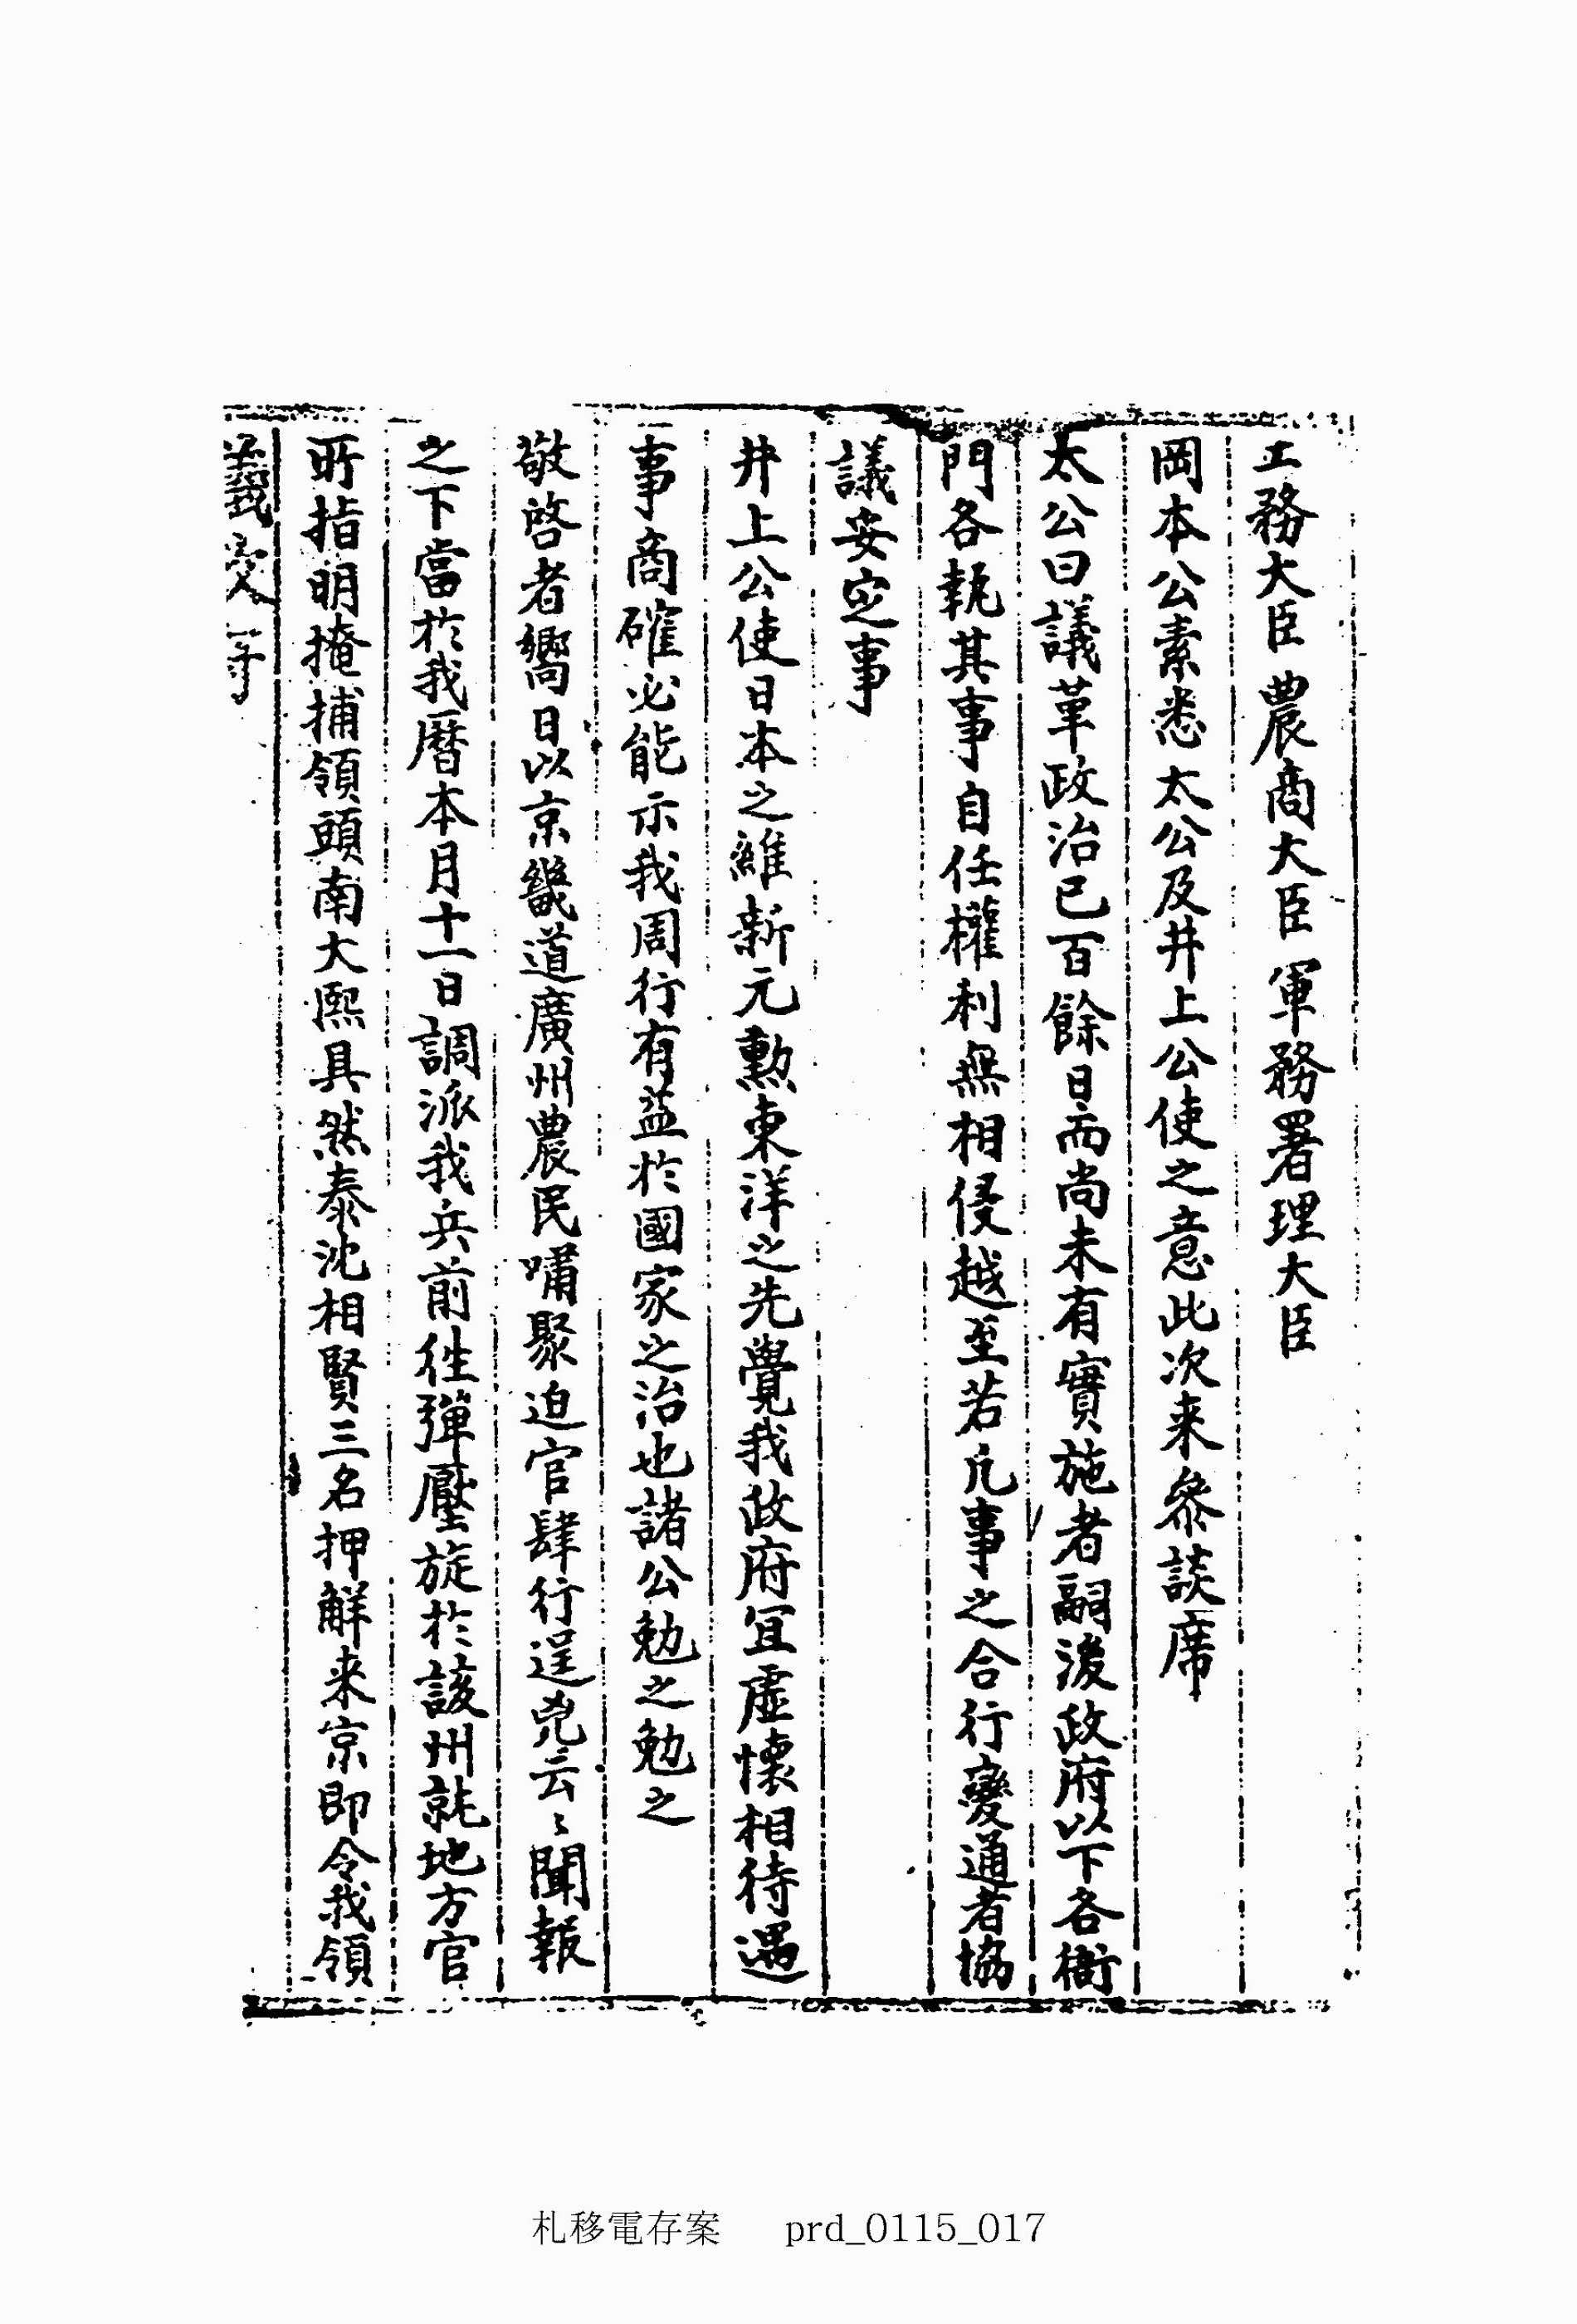 工務大臣 農商大臣 軍務署理大臣
岡本公素悉 太公及井上公使之意此次来參談席
太公曰議革政治已百餘日而尚未有實施者嗣後政府以下各衙
門各執其事自任權利無相侵越至若凡事之合行變通者協
議妥定事
井上公使日本之維新元勳東洋之先覺我政府宜虛懷相待遇
事商確必能示我周行有益於國家之治也諸公勉之勉之
敬啓者嚮日以京畿道廣州農民嘯聚迫官肆行逞兇云〻聞報
之下當於我曆本月十一日調派我兵前徃彈壓旋於該州就地方官
所指明掩捕領頭南大熙具然泰沈相賢三名押解来京即令我領
札移電存案 prd_0115_017